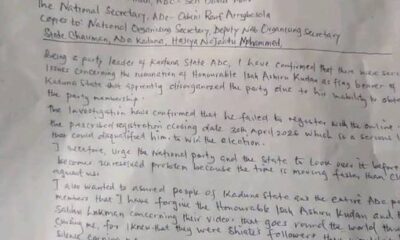 The National Secretary, ADC - Ogbeni Rauf Aregbesola
Copies to: National Organising Secretary, Deputy Nat Organising Secretary
State Chairman, ADC Kaduna, Hajiya Mohammed,
Being a party leader of Kaduna State ADC, I have confirmed that there were
issues concerning the nomination of Honourable Isah Ashiru Kudan as flag bearer of
Kaduna State that disorganized the party due to his inability to obtain
the party membership.
The Investigation have confirmed that he failed to register with the online
the prescribed registration closing date 30th April 2026 which is a serious
that could disqualified him to win the election.
I therefore, urge the National party and the State to look over it before
becomes unresolved problem because the time is moving faster than
against us.
I also wanted to assured people of Kaduna State and the entire ADC
members that I have forgive the Honourable Isah Ashiru Kudan and
Lukman concerning their video that goes round the world
me, for I knew that they were followers